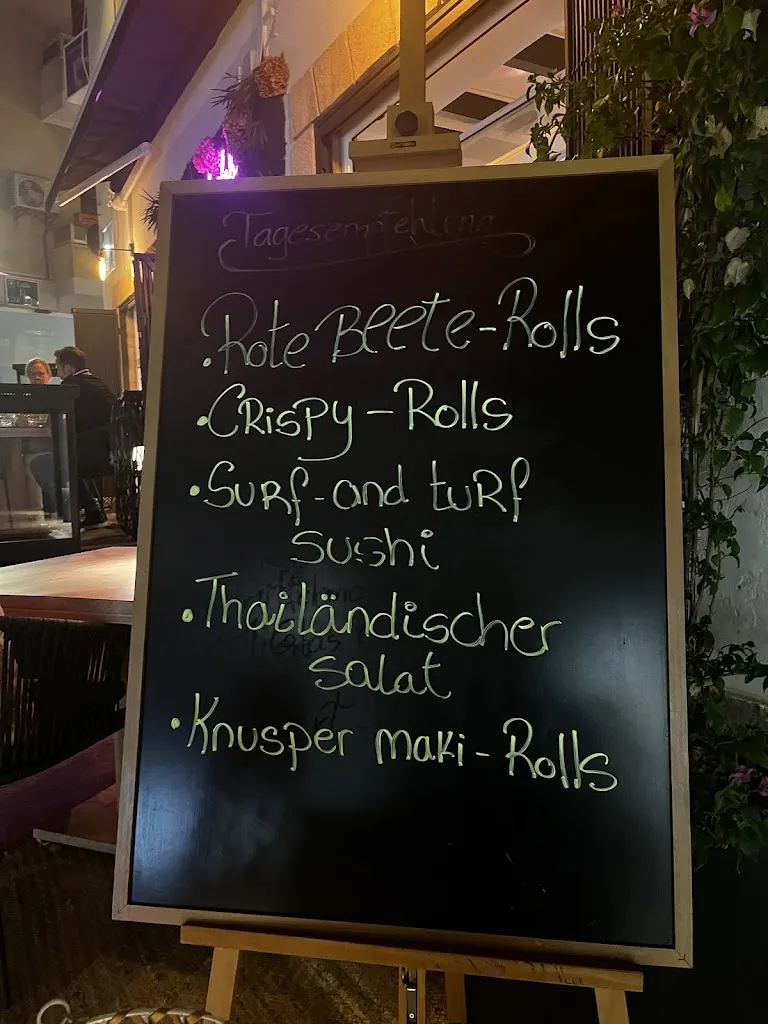 Tagesempfehlung
• Rote Beete-Rolls
• Crispy-Rolls
• Surf-and turf
sushi
• Thailändischer
salat
• Knusper maki-Rolls